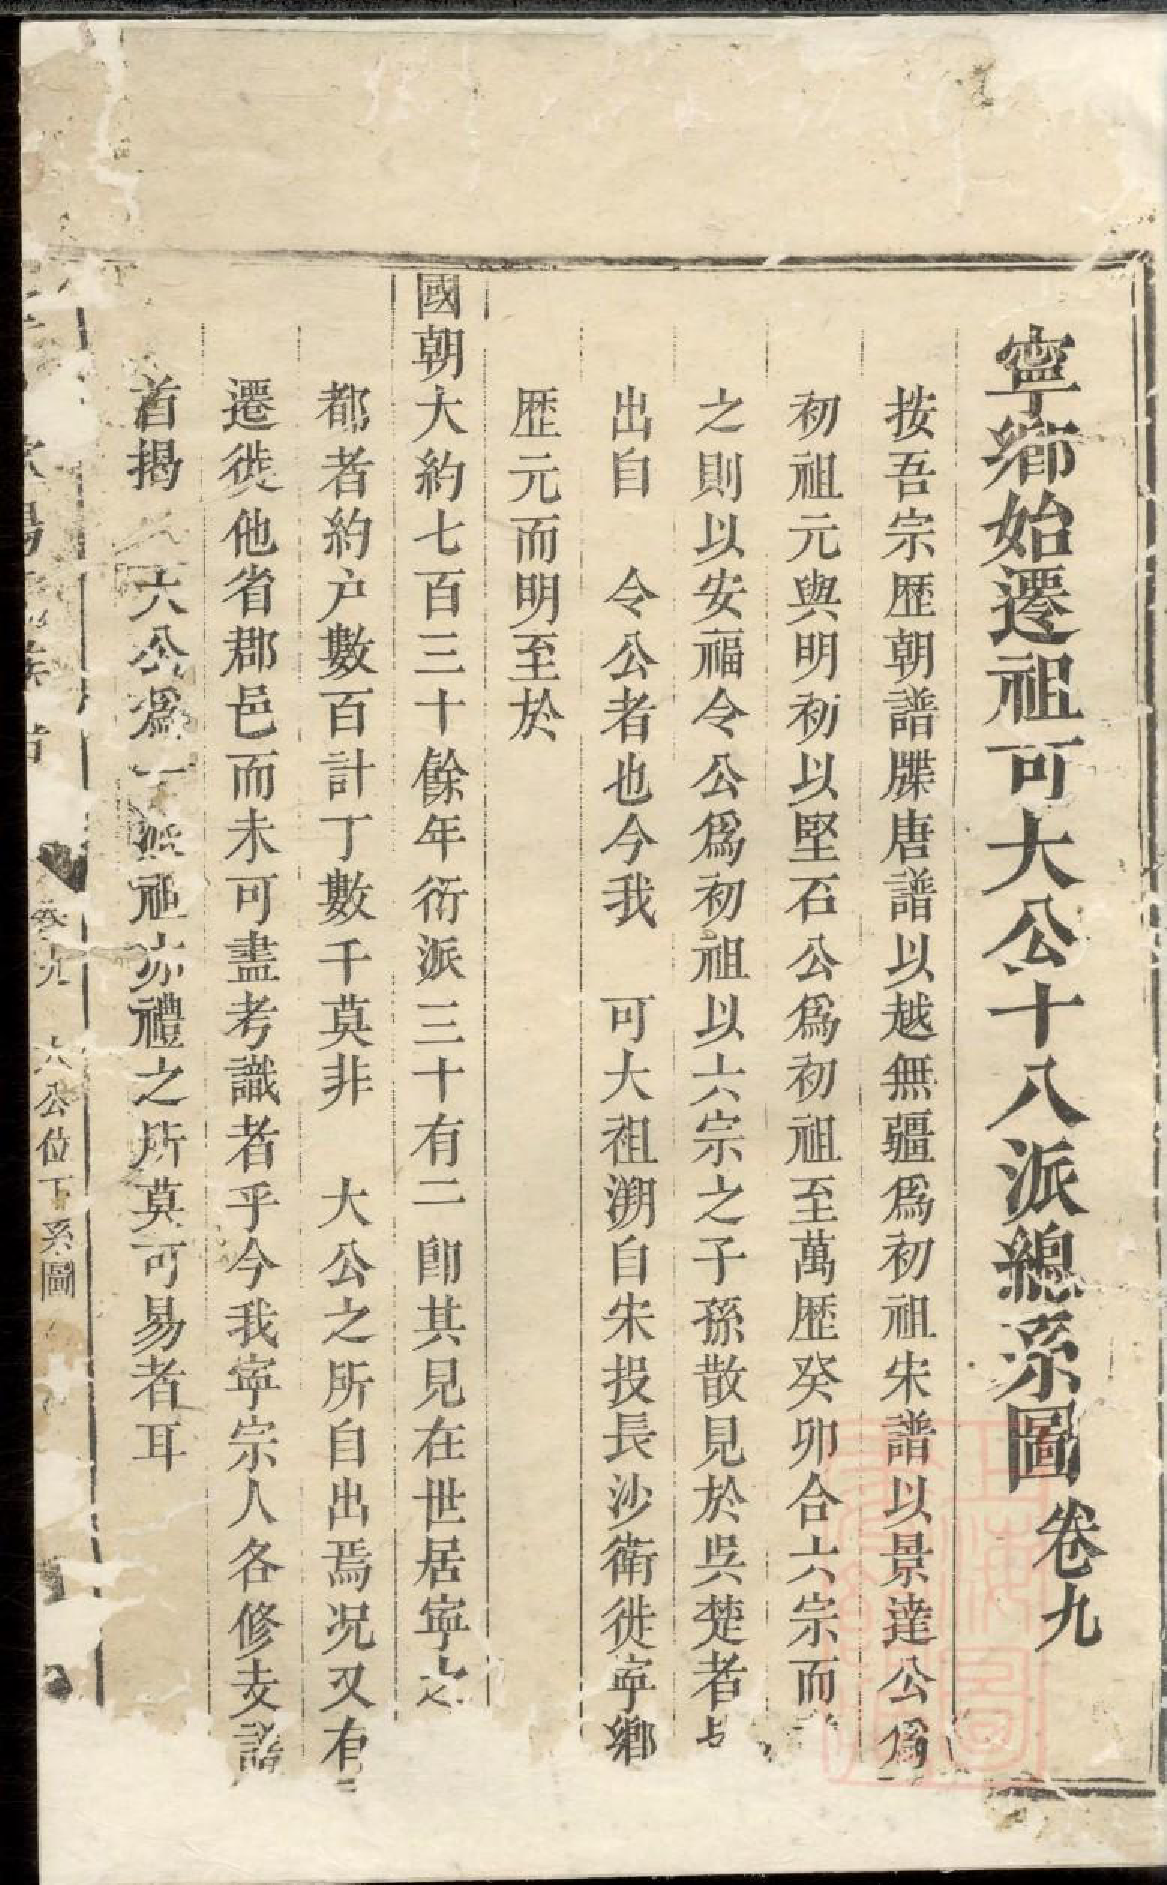 寧鄉始遷祖可大公十八派總系圖卷九
按吾宗歷朝譜牒唐譜以越無疆爲初祖宋譜以景達公爲
初祖元與明初以堅石公爲初祖至萬歷癸卯合六宗而
之則以安福令公爲初祖以六宗之子孫散見於吳楚者
出自 令公者也今我 可大祖溯自宋投長沙衛徙寧鄉
歷元而明至於
國朝大約七百三十餘年衍派三十有二卽其見在世居寧之
都者約户數百計丁數千莫非 大公之所自出焉况又有
遷徙他省郡邑而未可盡考識者乎今我寧宗人各修支譜
首揭 大公爲一 祖亦禮之所莫可易者耳
卷九 大公位下系圖
上海圖書館藏